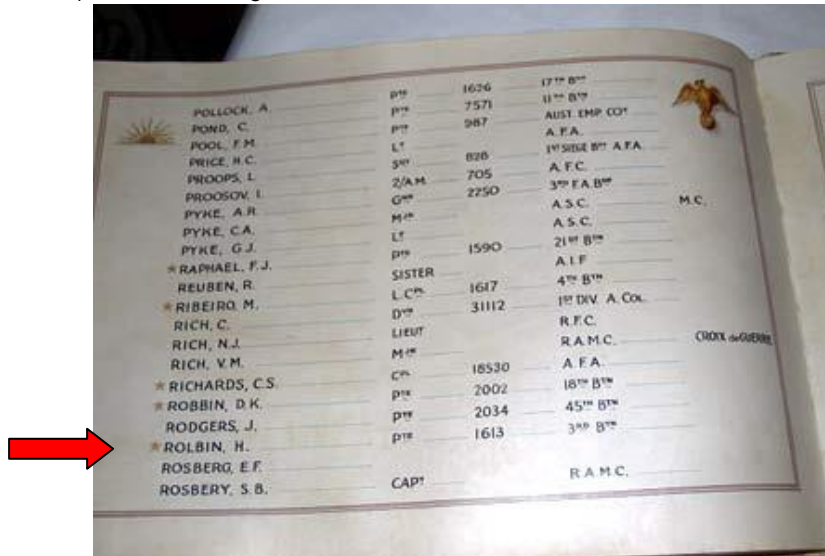 POLLOCK, A. PTE 1626 17TH BTN
POND, C. PTE 7571 11TH BTN
POOL, F.M. PTE 987 AUST. EMP. COY
PRICE, H.C. LT A.F.A.
PROOPS, L. SGT 828 1ST SIEGE BTY A.F.A.
PROOSOV, I. 2/A.M. 705 A.F.C.
PYKE, A.R. GNR 2250 3RD F.A.BDE
PYKE, C.A. MJR A.S.C. M.C.
PYKE, G.J. LT A.S.C.
★RAPHAEL, F.J. PTE 1590 21ST BTN
REUBEN, R. SISTER A.I.F
★RIBEIRO, M. L.CPL 1617 4TH BTN
RICH, C. DVR 31112 1ST DIV. A. COL.
RICH, N.J. LIEUT R.F.C.
RICH, V.M. MJR R.A.M.C. CROIX de GUERRE
★RICHARDS, C.S. CPL 18530 A.F.A.
★ROBBIN, D.K. PTE 2002 18TH BTN
RODGERS, J. PTE 2034 45TH BTN
★ROLBIN, H. PTE 1613 3RD BTN
ROSBERG, E.F.
ROSBERY, S.B. CAPT R.A.M.C.